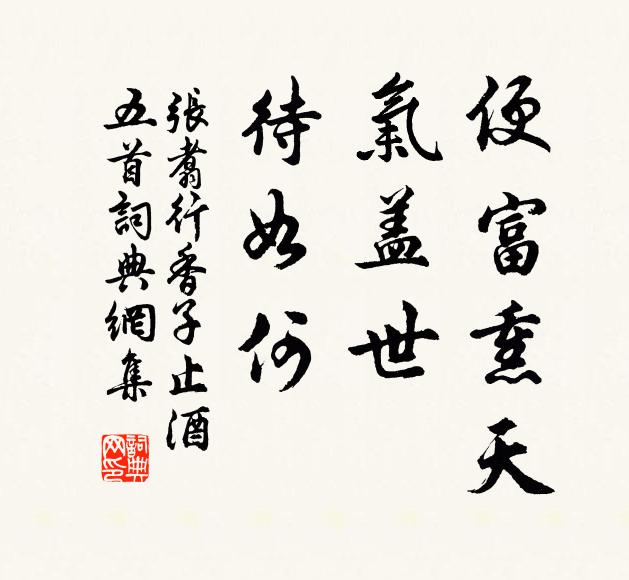 便富熏天
氣蓋世
待如何
張翥行香子止酒
五首詞典網集
詞典網印